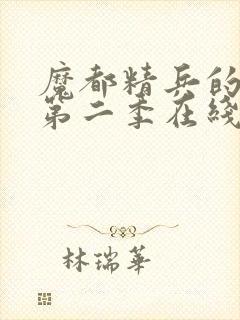 魔都精兵的
第二季在线
林瑞華